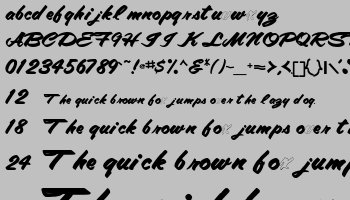 abcdefghijklmnopqrstuvwxyz
ABCDEFGHIJKLMNOPQRS
0123456789
12 The quick brown fox jumps over the lazy dog.
18 The quick brown fox jumps over t
24 The quick brown fox jump